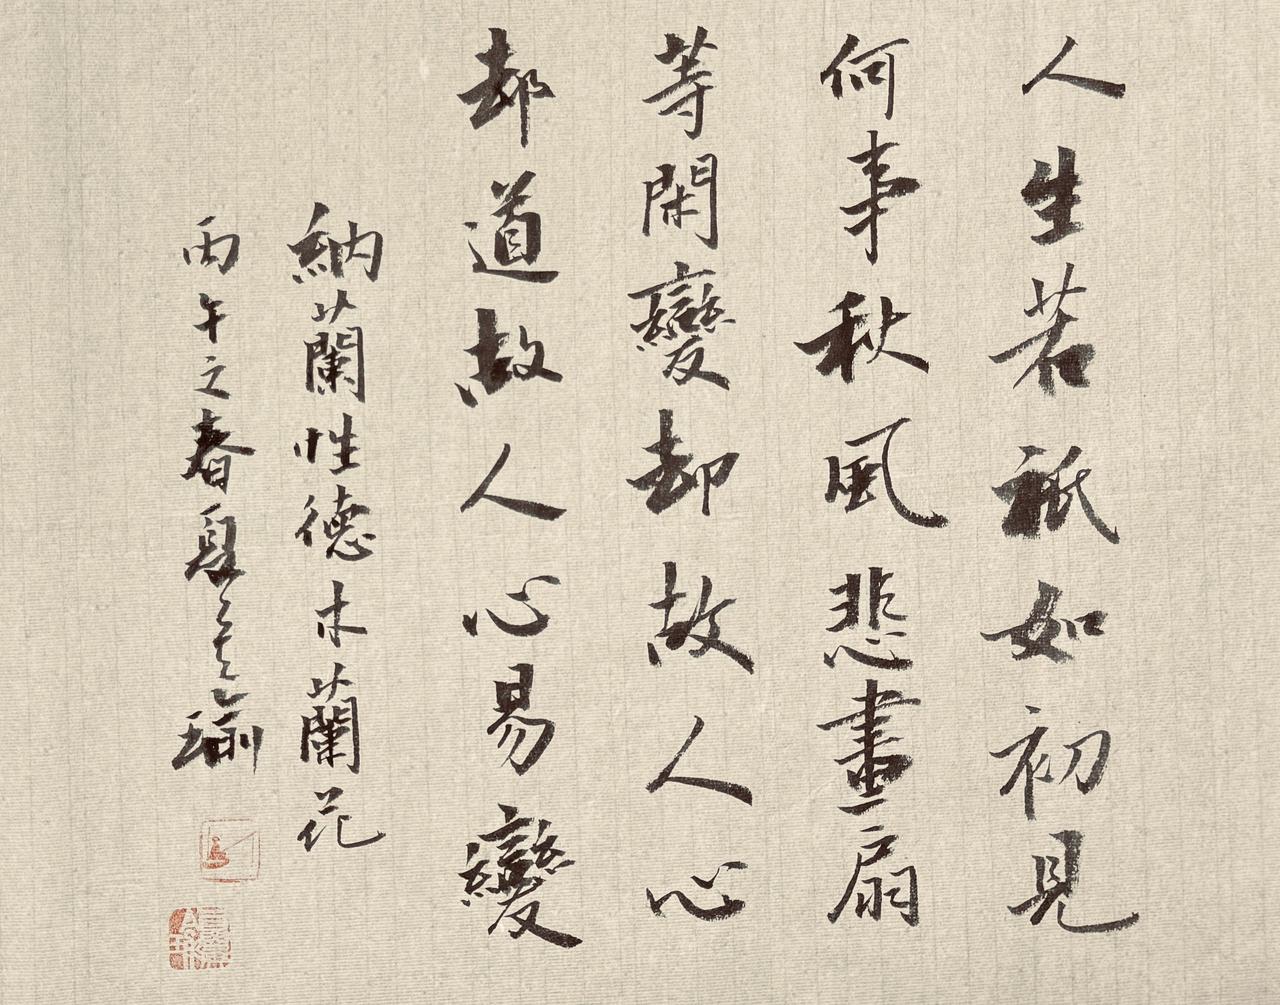 人生若祇如初見
何事秋風悲畫扇
等閑變却故人心
却道故人心易變
納蘭性德木蘭花
丙午之春夏瑜